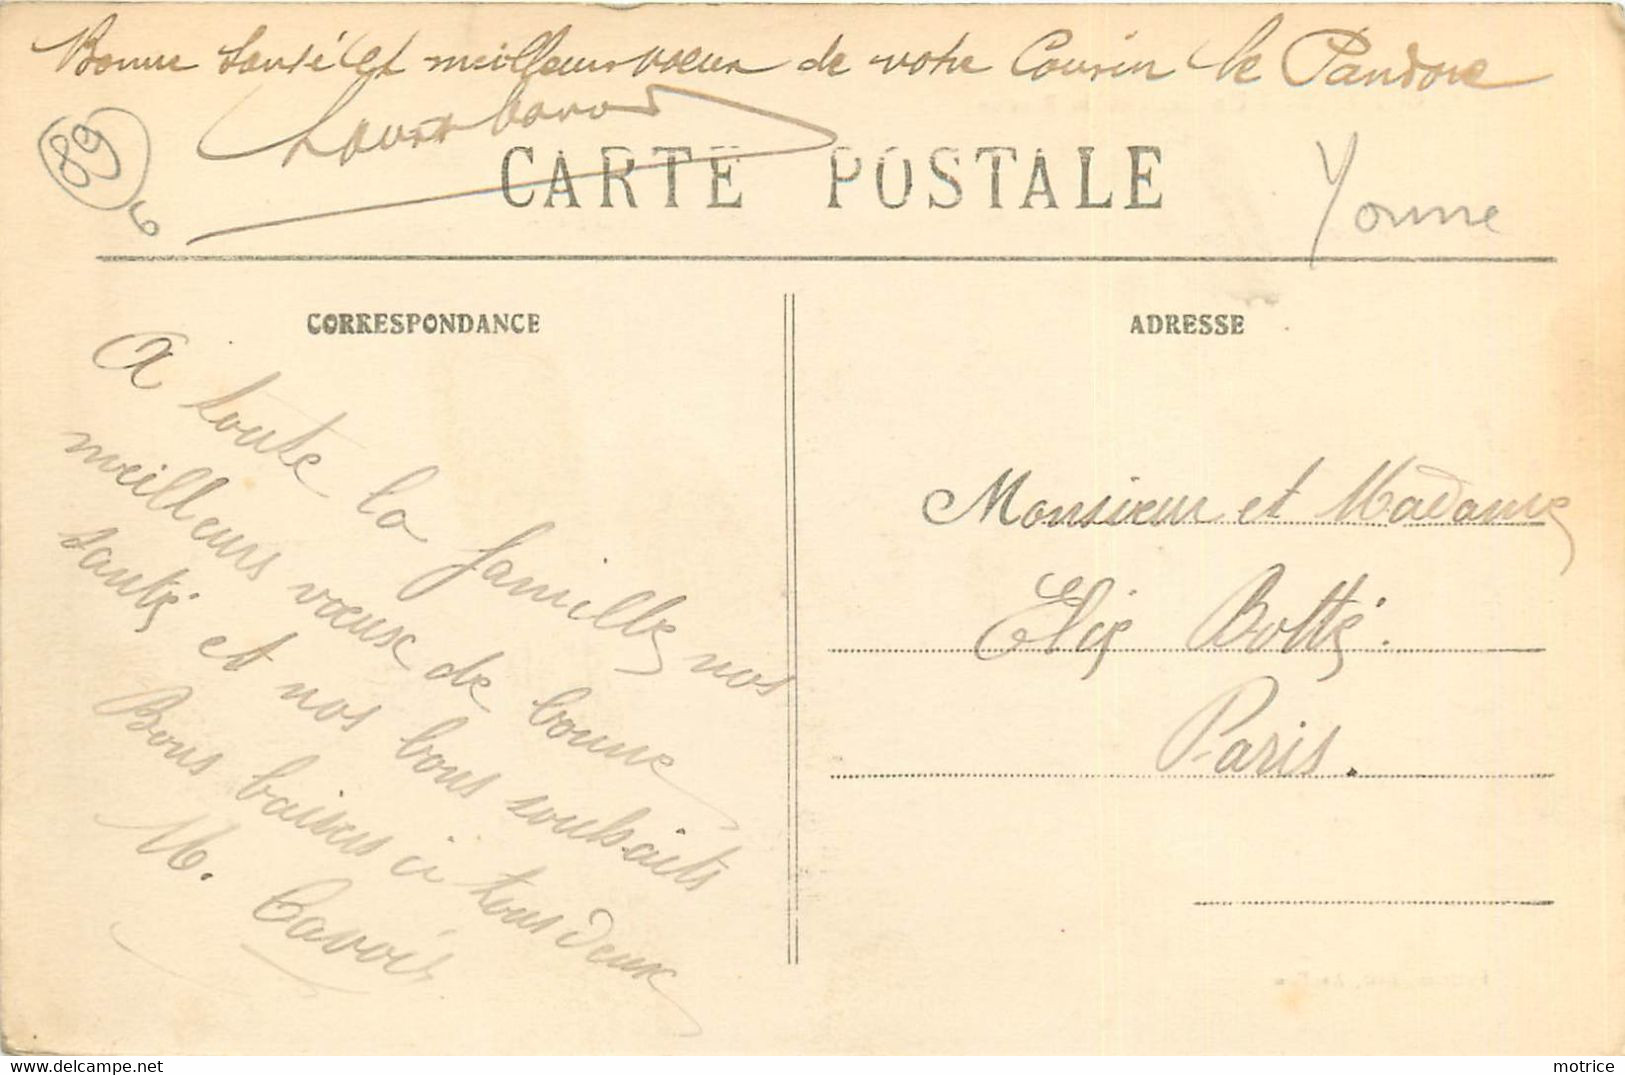 Bonne Santé et meilleurs vœux de votre Cousin le Pandore
89
6
CARTE POSTALE
Yonne
CORRESPONDANCE
ADRESSE
A toute la famille nos
meilleurs vœux de bonne
santé et nos bons souhaits
Bons baisers à tous deux
M. Cavois
Monsieur et Madame
Elie Botté.
Paris.
motrice